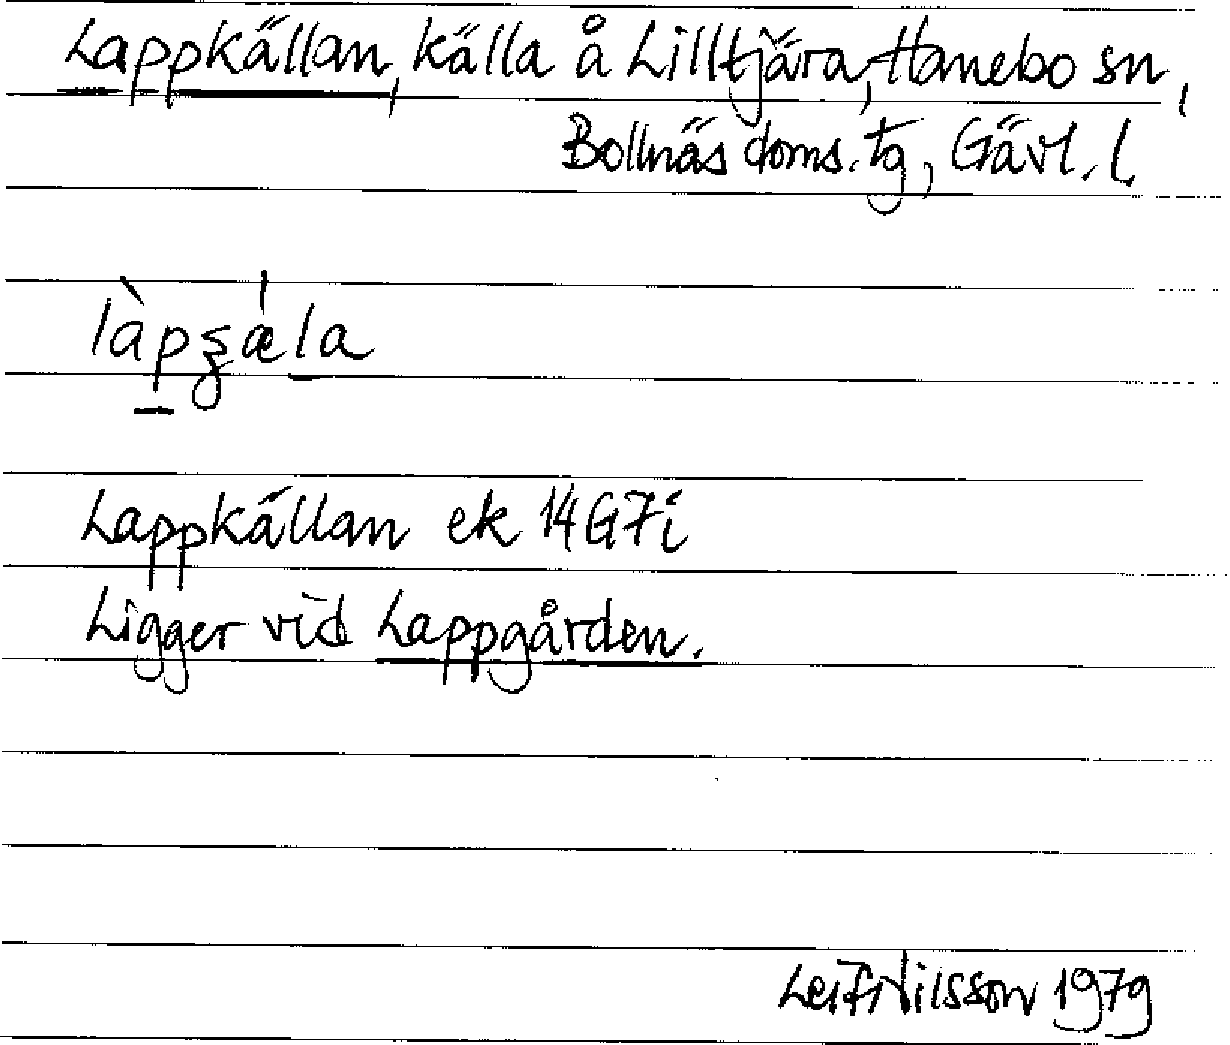 Lappkällan, källa å Lilltjära, Hanebo sn,
Bollnäs doms. tg, Gävl. l.
làpʂæ̍la
Lappkällan ek 14G7i
Ligger vid Lappgården.
Leif Nilsson 1979